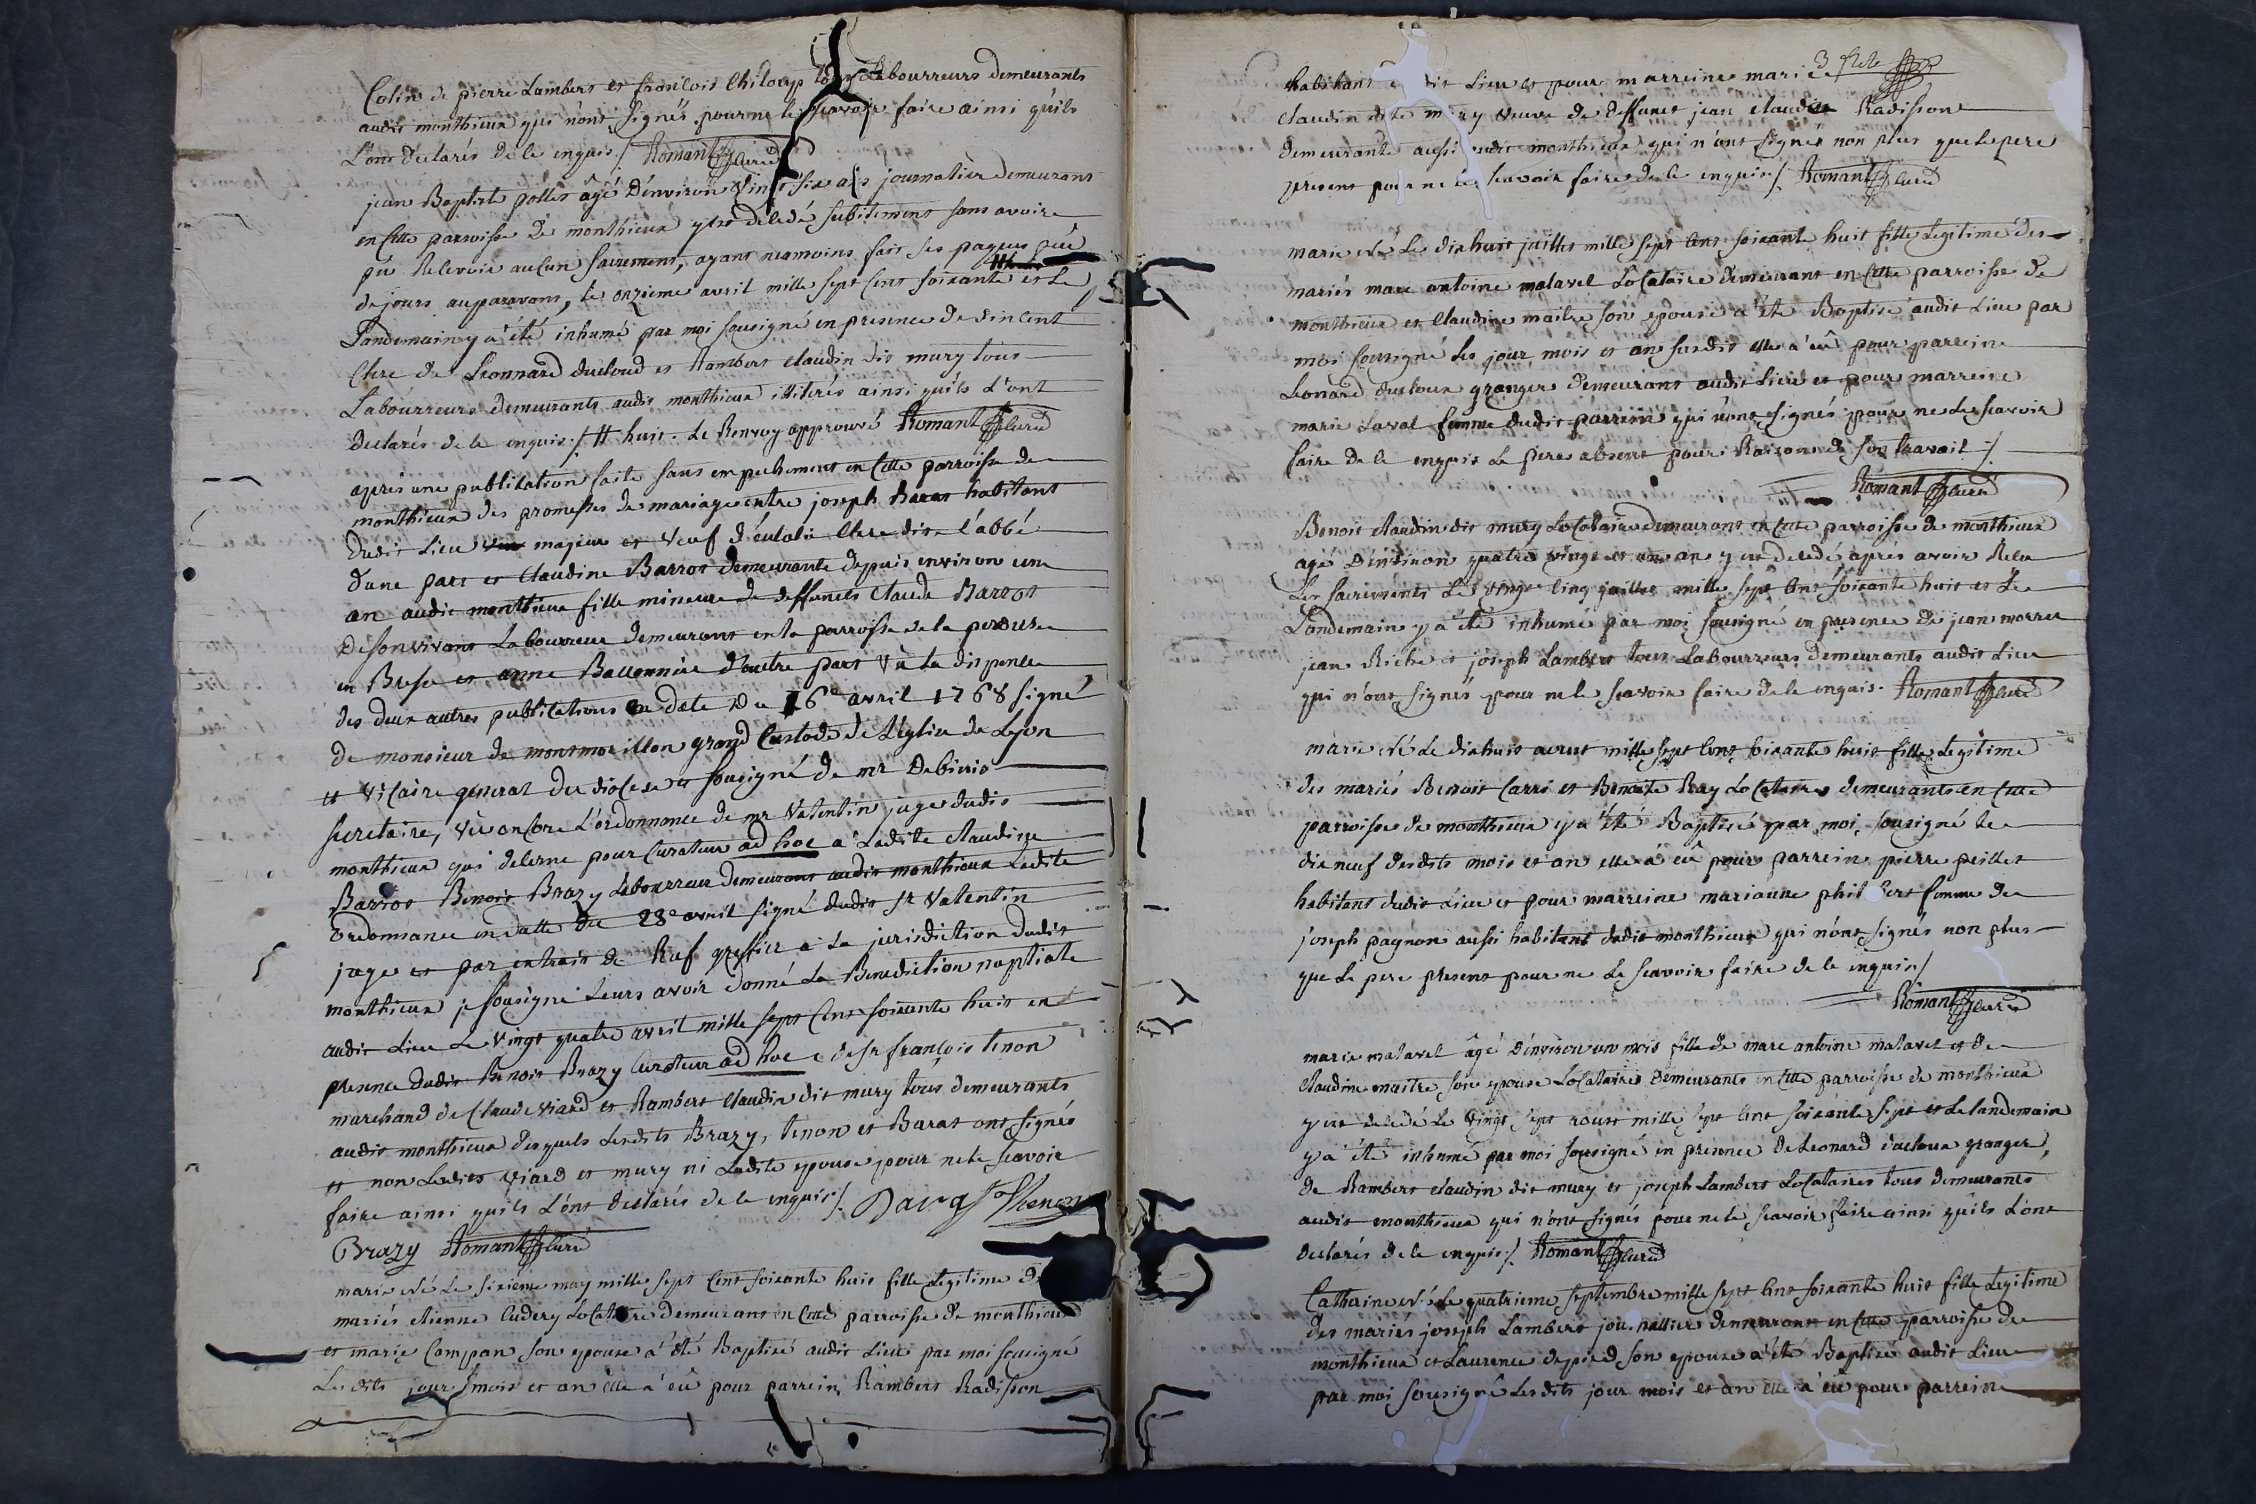 Colin de pierre Lambert et francois Chiloup tous Labourreurs demeurants
audit monthieux qui n'ont signés pour ne le scavoir faire ainsi quils
L'ont declarés de ce enquis ./. Romant curé
jean Baptiste pollet âgé d'environ vingt six ans journalier demeurant
en cette parroisse de monthieux y est decedé subitement sans avoire
pû recevoir aucun sacrement, ayant neamoins fait ses paques
de jours auparavant, le onzieme avril mille sept cent soixante et Le
Landemain y a été inhumé par moi sousigné en presence de vincent
Clere de Leonnard ducloud et Rambert claudin dit mury tous
Labourreurs demeurants audit monthieux illiterés ainsi quils L'ont
declarés de ce enquis ./. # huit. Le Renvoy approuvé Romant curé
après une publication faite sans empechement en cette parroisse de
monthieux des promesses de mariage entre joseph Baras habitant
dudit Lieu majeur et veuf d'eulalie Clere dite l'abbé
d'une part et Claudine Barrot demeurante depuis environ une
an audit monthieux fille mineure de deffuncts Claude Barrot
de son vivant Labourreur demeurant en la parroisse de la perouse
en Bresse et anne Ballonniere d'autre part vû La dispense
des deux autres publications en date du 16e avril 1768 signé
de monsieur de montmorillon grand Custode de L'église de Lyon
et vicaire general du diocese et sousigné de mr Debirio
secretaire, vû encore L'ordonnance de mr Valentin juge dudit
monthieux qui decerne pour Curateur ad hoc a Ladite claudine
Barrot Benoit Brazy Labourreur demeurant audit monthieux Ladite
ordonnance en datte du 23e avril signé dudit sr Valentin
juge et par extrait de Ruf greffier a La jurisdiction dudit
monthieux je sousigné Leurs avoir donné La Benediction nuptiale
audit Lieu Le vingt quatre avril mille sept cent soixante huit en
presence dudit Benoit Brazy Curateur ad hoc de sr françois tenon
marchand de Claude viard et Rambert claudin dit mury tous demeurants
audit monthieux desquels Lesdits Brazy, tenon et Baras ont signés
et non Lesdits viard et mury ni Ladite epouse pour ne le scavoir
faire ainsi quils L'ont declarés de ce enquis ./. Barras Thenon
Brazy Romant curé
marie née Le sixieme may mille sept cent soixante huit fille Legitime des
mariés etienne Cudery Locataire demeurant en cette parroisse de monthieux
et marie Campan son epouse a été Baptisé audit Lieu par moi sousigné
Lesdits jour mois et an elle a eû pour parrein Rambert Radisson
habitant dudit Lieu et pour marreine marie
claudin dite mury veuve de deffunct jean claude Radisson
demeurante aussi audit monthieux qui n'ont signés non plus que le pere
present pour ne le scavoir faire de ce enquis ./. Romant curé
marie née Le dixhuit juillet mille sept cent soixante huit fille Legitime des
mariés marc antoine malavel Locataire demeurant en cette parroisse de
monthieux et Claudine maitre son epouse a été Baptisé audit Lieu par
moi sousigné Les jour mois et an susdit elle a eû pour parrein
Leonard ducloux granger demeurant audit Lieu et pour marreine
marie Laval femme dudit parrein qui n'ont signés pour ne Le scavoir
faire de ce enquis Le pere absent pour Raison de son travail ./.
Romant curé
Benoit claudin dit mury Locataire demeurant en cette parroisse de monthieux
agé d'environ quatre vingt et un an y est decedé après avoir Recu
Les sacrements Le vingt cinq juillet mille sept cent soixante huit et Le
Landemain y a été inhumé par moi sousigné en presence de jean morrel
jean Riche et joseph Lambert tous Labourreurs demeurants audit Lieu
qui n'ont signés pour ne le scavoir faire de ce enquis. Romant curé
marie née Le dixhuit aoust mille sept cent soixante huit fille Legitime
des mariés Benoit Carré et Benoite Ray Locataires demeurants en cette
parroisse de monthieux y a été Baptisé par moi sousigné Le
dix neuf desdits mois et an elle a eû pour parrein pierre peillet
habitant dudit Lieu et pour marreine marianne philibert femme de
joseph pagnon aussi habitant dudit monthieux qui n'ont signés non plus
que Le pere present pour ne Le scavoir faire de ce enquis ./.
Romant curé
marie malavel âgé d'environ un mois fille de marc antoine malavel et de
Claudine maitre son epouse Locataires demeurants en cette parroisse de monthieux
y est decedé Le vingt sept aoust mille sept cent soixante sept et Le landemain
y a été inhumé par moi sousigné en presence de Leonard ducloux granger,
de Rambert claudin dit mury et joseph Lambert Locataires tous demeurants
audit monthieux qui n'ont signés pour ne le scavoir faire ainsi quils L'ont
declarés de ce enquis ./. Romant curé
Catherine née Le quatrieme septembre mille sept cent soixante huit fille Legitime
des mariés joseph Lambert journallier demeurant en cette parroisse de
monthieux et Laurence depied son epouse a été Baptisée audit Lieu
par moi sousigné Lesdits jour mois et an elle a eû pour parrein